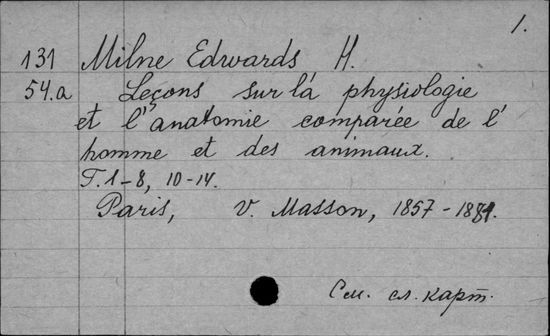 1.
131 Milne Edwards H.
54.a Leçons sur lá physiologie
et l'anatomie comparée de l'
homme et des animaux.
T. 1-8, 10-14.
Paris, V. Masson, 1857-1881.
См. сл. карт.